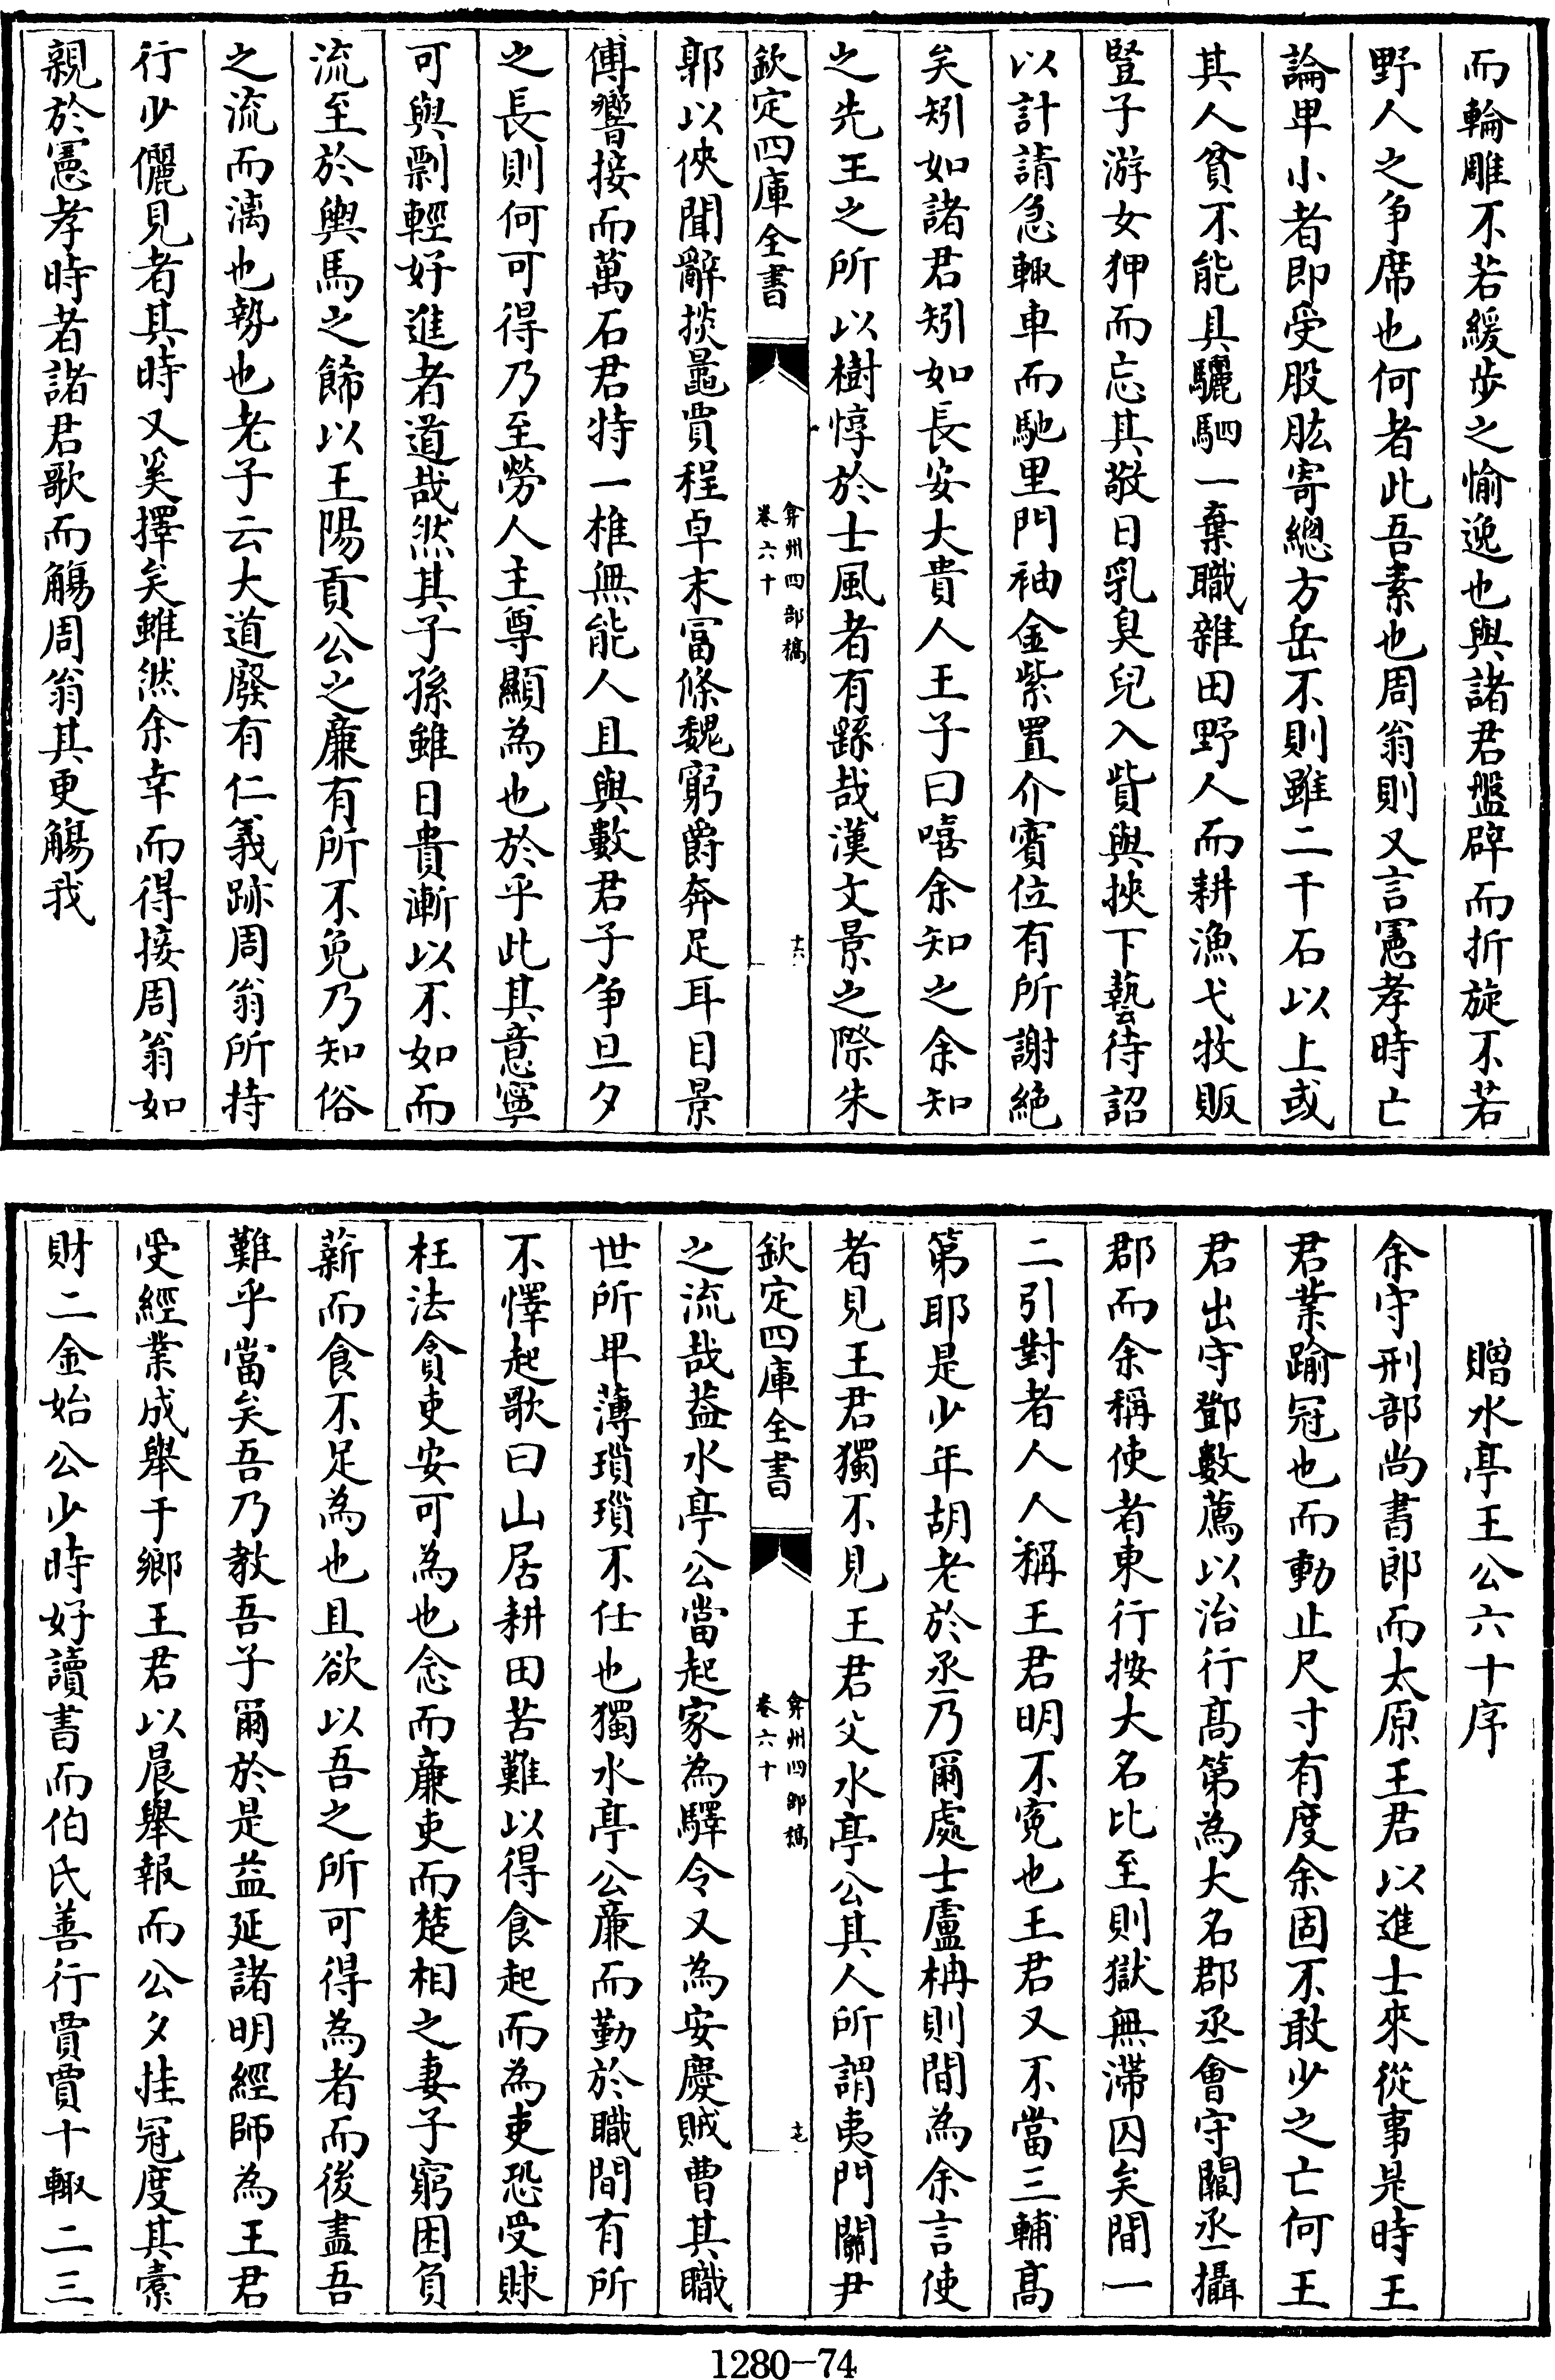 而輪雕不若緩步之愉逸也與諸君盤辟而折旋不若
野人之争席也何者此吾素也周翁則又言憲孝時亡
論卑小者即受股肱寄總方岳不則雖二千石以上或
其人貧不能具驪駟一棄職雜田野人而耕漁弋牧販
豎子游女狎而忘其敬日乳臭兒入貲與挾下藝待詔
以計請急輙車而馳里門袖金紫置介賓位有所謝絶
矣矧如諸君矧如長安大貴人王子曰嘻余知之余知
之先王之所以樹惇於士風者有繇哉漢文景之際朱
欽定四庫全書
弇州四部稿
卷六十
十六
郭以俠聞辭掞鼂賈程卓末富條魏窮爵奔足耳目景
傅響接而萬石君特一椎無能人且與數君子争旦夕
之長則何可得乃至勞人主尊顯為也於乎此其意寧
可與剽輕好進者道哉然其子孫雖日貴漸以不如而
流至於輿馬之飾以王陽貢公之廉有所不免乃知俗
之流而漓也勢也老子云大道廢有仁義跡周翁所持
行少儷見者其時又奚擇矣雖然余幸而得接周翁如
親於憲孝時者諸君歌而觴周翁其更觴我
贈水亭王公六十序
余守刑部尚書郎而太原王君以進士來從事是時王
君業踰冠也而動止尺寸有度余固不敢少之亡何王
君出守鄧數薦以治行髙第為大名郡丞會守闕丞攝
郡而余稱使者東行按大名比至則獄無滯囚矣間一
二引對者人人稱王君明不寃也王君又不當三輔髙
第耶是少年胡老於丞乃爾處士盧柟則間為余言使
者見王君獨不見王君父水亭公其人所謂夷門關尹
欽定四庫全書
弇州四部稿
卷六十
十七
之流哉益水亭公當起家為驛令又為安慶賊曹其職
世所卑薄瑣瑣不仕也獨水亭公廉而勤於職間有所
不懌起歌曰山居耕田苦難以得食起而為吏恐受賕
枉法貪吏安可為也念而廉吏而楚相之妻子窮困負
薪而食不足為也且欲以吾之所可得為者而後盡吾
難乎當矣吾乃教吾子爾於是益延諸明經師為王君
受經業成舉于鄉王君以晨舉報而公夕挂冠度其橐
財二金始公少時好讀書而伯氏善行賈賈十輙二三
1280—74